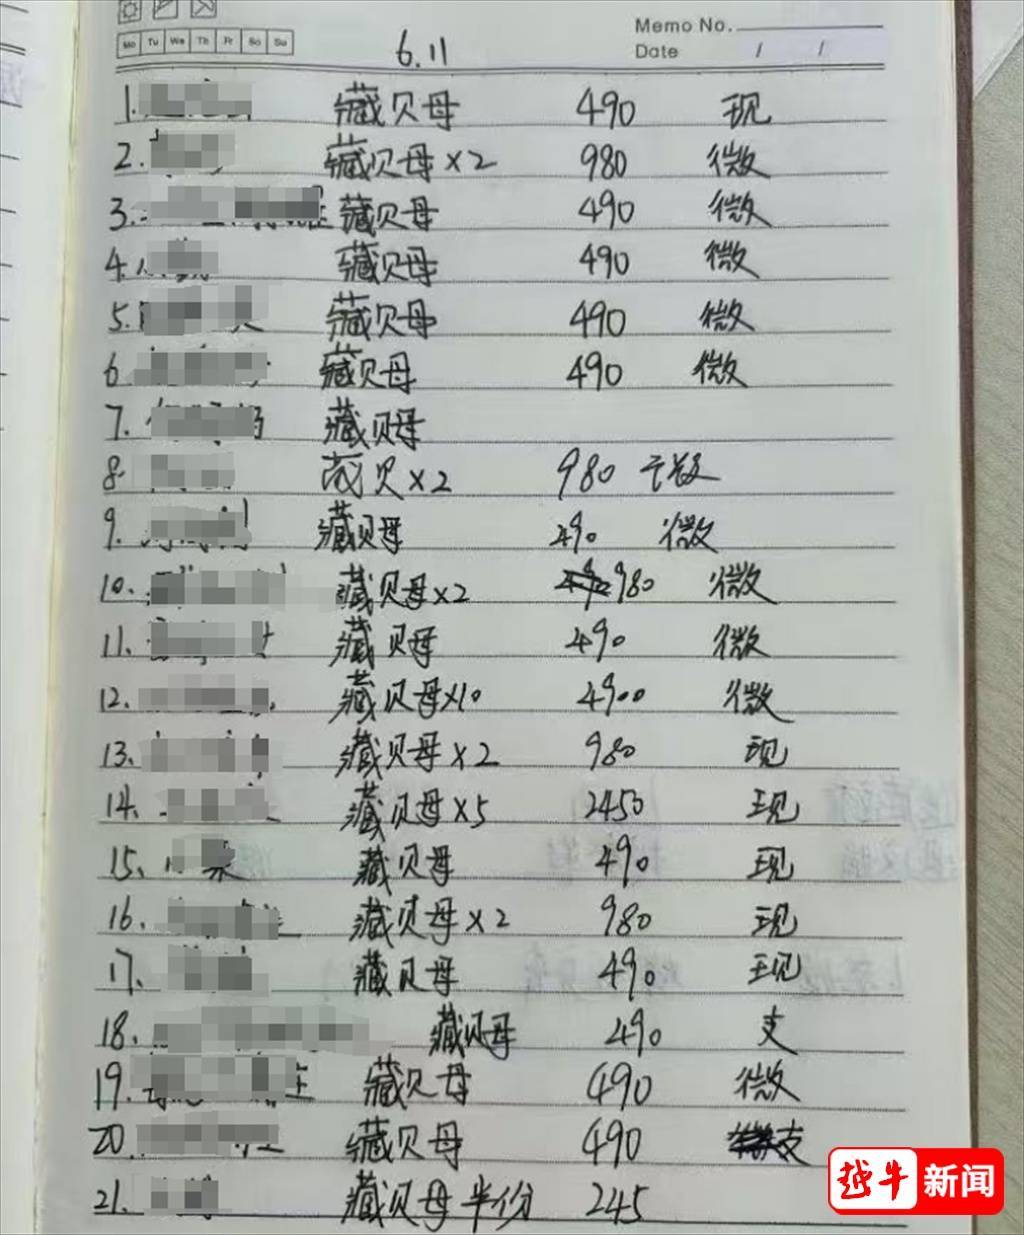 Memo No.
Mo Tu We Th Fr Sa Su
Date / /
6.11
1. 藏贝母 490 现
2. 藏贝母×2 980 微
3. 藏贝母 490 微
4. 藏贝母 490 微
5. 藏贝母 490 微
6 藏贝母 490 微
7. 藏贝母
8. 藏贝×2 980
9. 藏贝母 490 微
10. 藏贝母×2 980 微
11. 藏贝母 490 微
12. 藏贝母×10 4900 微
13. 藏贝母×2 980 现
14. 藏贝母×5 2450 现
15. 藏贝母 490 现
16. 藏贝母×2 980 现
17. 藏贝母 490 现
18. 藏贝母 490 支
19. 藏贝母 490 微
20 藏贝母 490 支
21. 藏贝母半份 245
越牛新闻